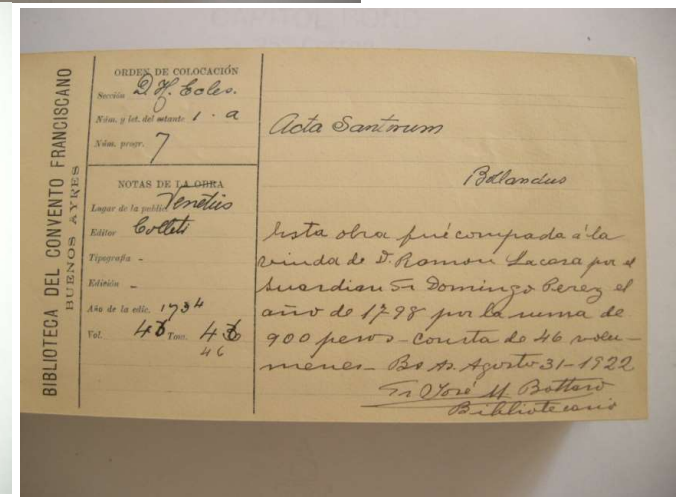 BIBLIOTECA DEL CONVENTO FRANCISCANO
BUENOS AYRES
ORDEN DE COLOCACIÓN
Sección D. H. Ecles.
Núm. y let. del estante 1. a
Núm. progr. 7
NOTAS DE LA OBRA
Lugar de la public. Venetiis
Editor Colleti
Tipografía -
Edición -
Año de la edic. 1734
Vol. 43 Tom. 43
46
Acta Santorum
Bollandus
Esta obra fué compada á la
viuda de D. Ramon Lacasa por el
Guardian Fr Domingo Perez el
año de 1798 por la suma de
900 pesos - consta de 46 volu-
menes - Bs As. Agosto 31 - 1922
Fr José M. Bottaro
Bibliotecario